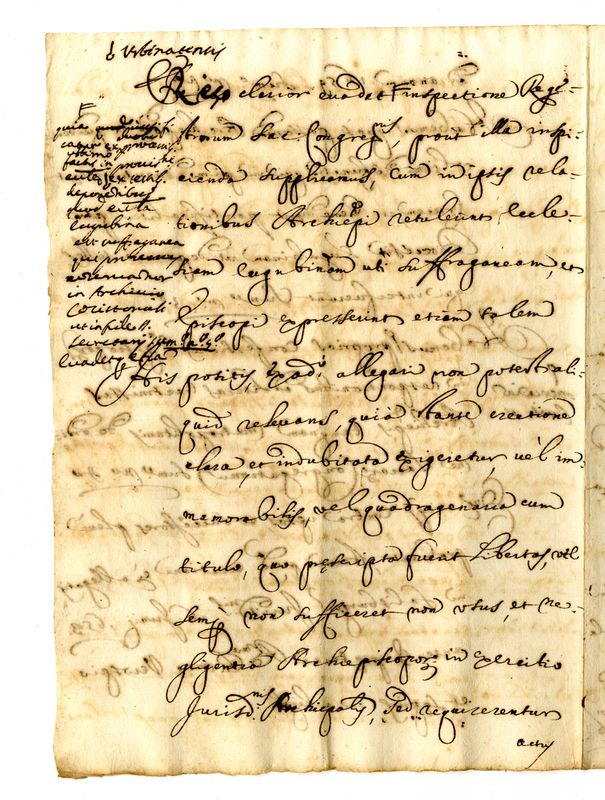 Urbinaten̄sis
Res clarior evadet F inspectione Rege-
strorum Sac: Congreg.nis, prout illa inspi-
cienda supplicamus, cum in ipsis rela-
tionibus Archiepi retulerint, Eccle-
siam Eugubinam uti suffraganeam, et
Episcopi expresserint etiam talem
His positis, Ex ad.º allegari non potest ali-
quid relevans, quia stante erectione
clara, et indubitata exigeretur, vel im-
memorabilis, vel quadragenaria cum
titulo, quo prescripta fuerit libertas, vel
semp non sufficeret non usus, et ne-
gligentia Archiepiscopor. in exercitio
Jurisd.nis Archiepalis, sed requirerentur
actus
F
quia
fuit
eius ex
deponentibus
quod dicta
Eugubina
est suffraganea
qui
in Archivio
Concistoriali
ut in fide
Secretarij sum.º n.º
Evadet, etiam